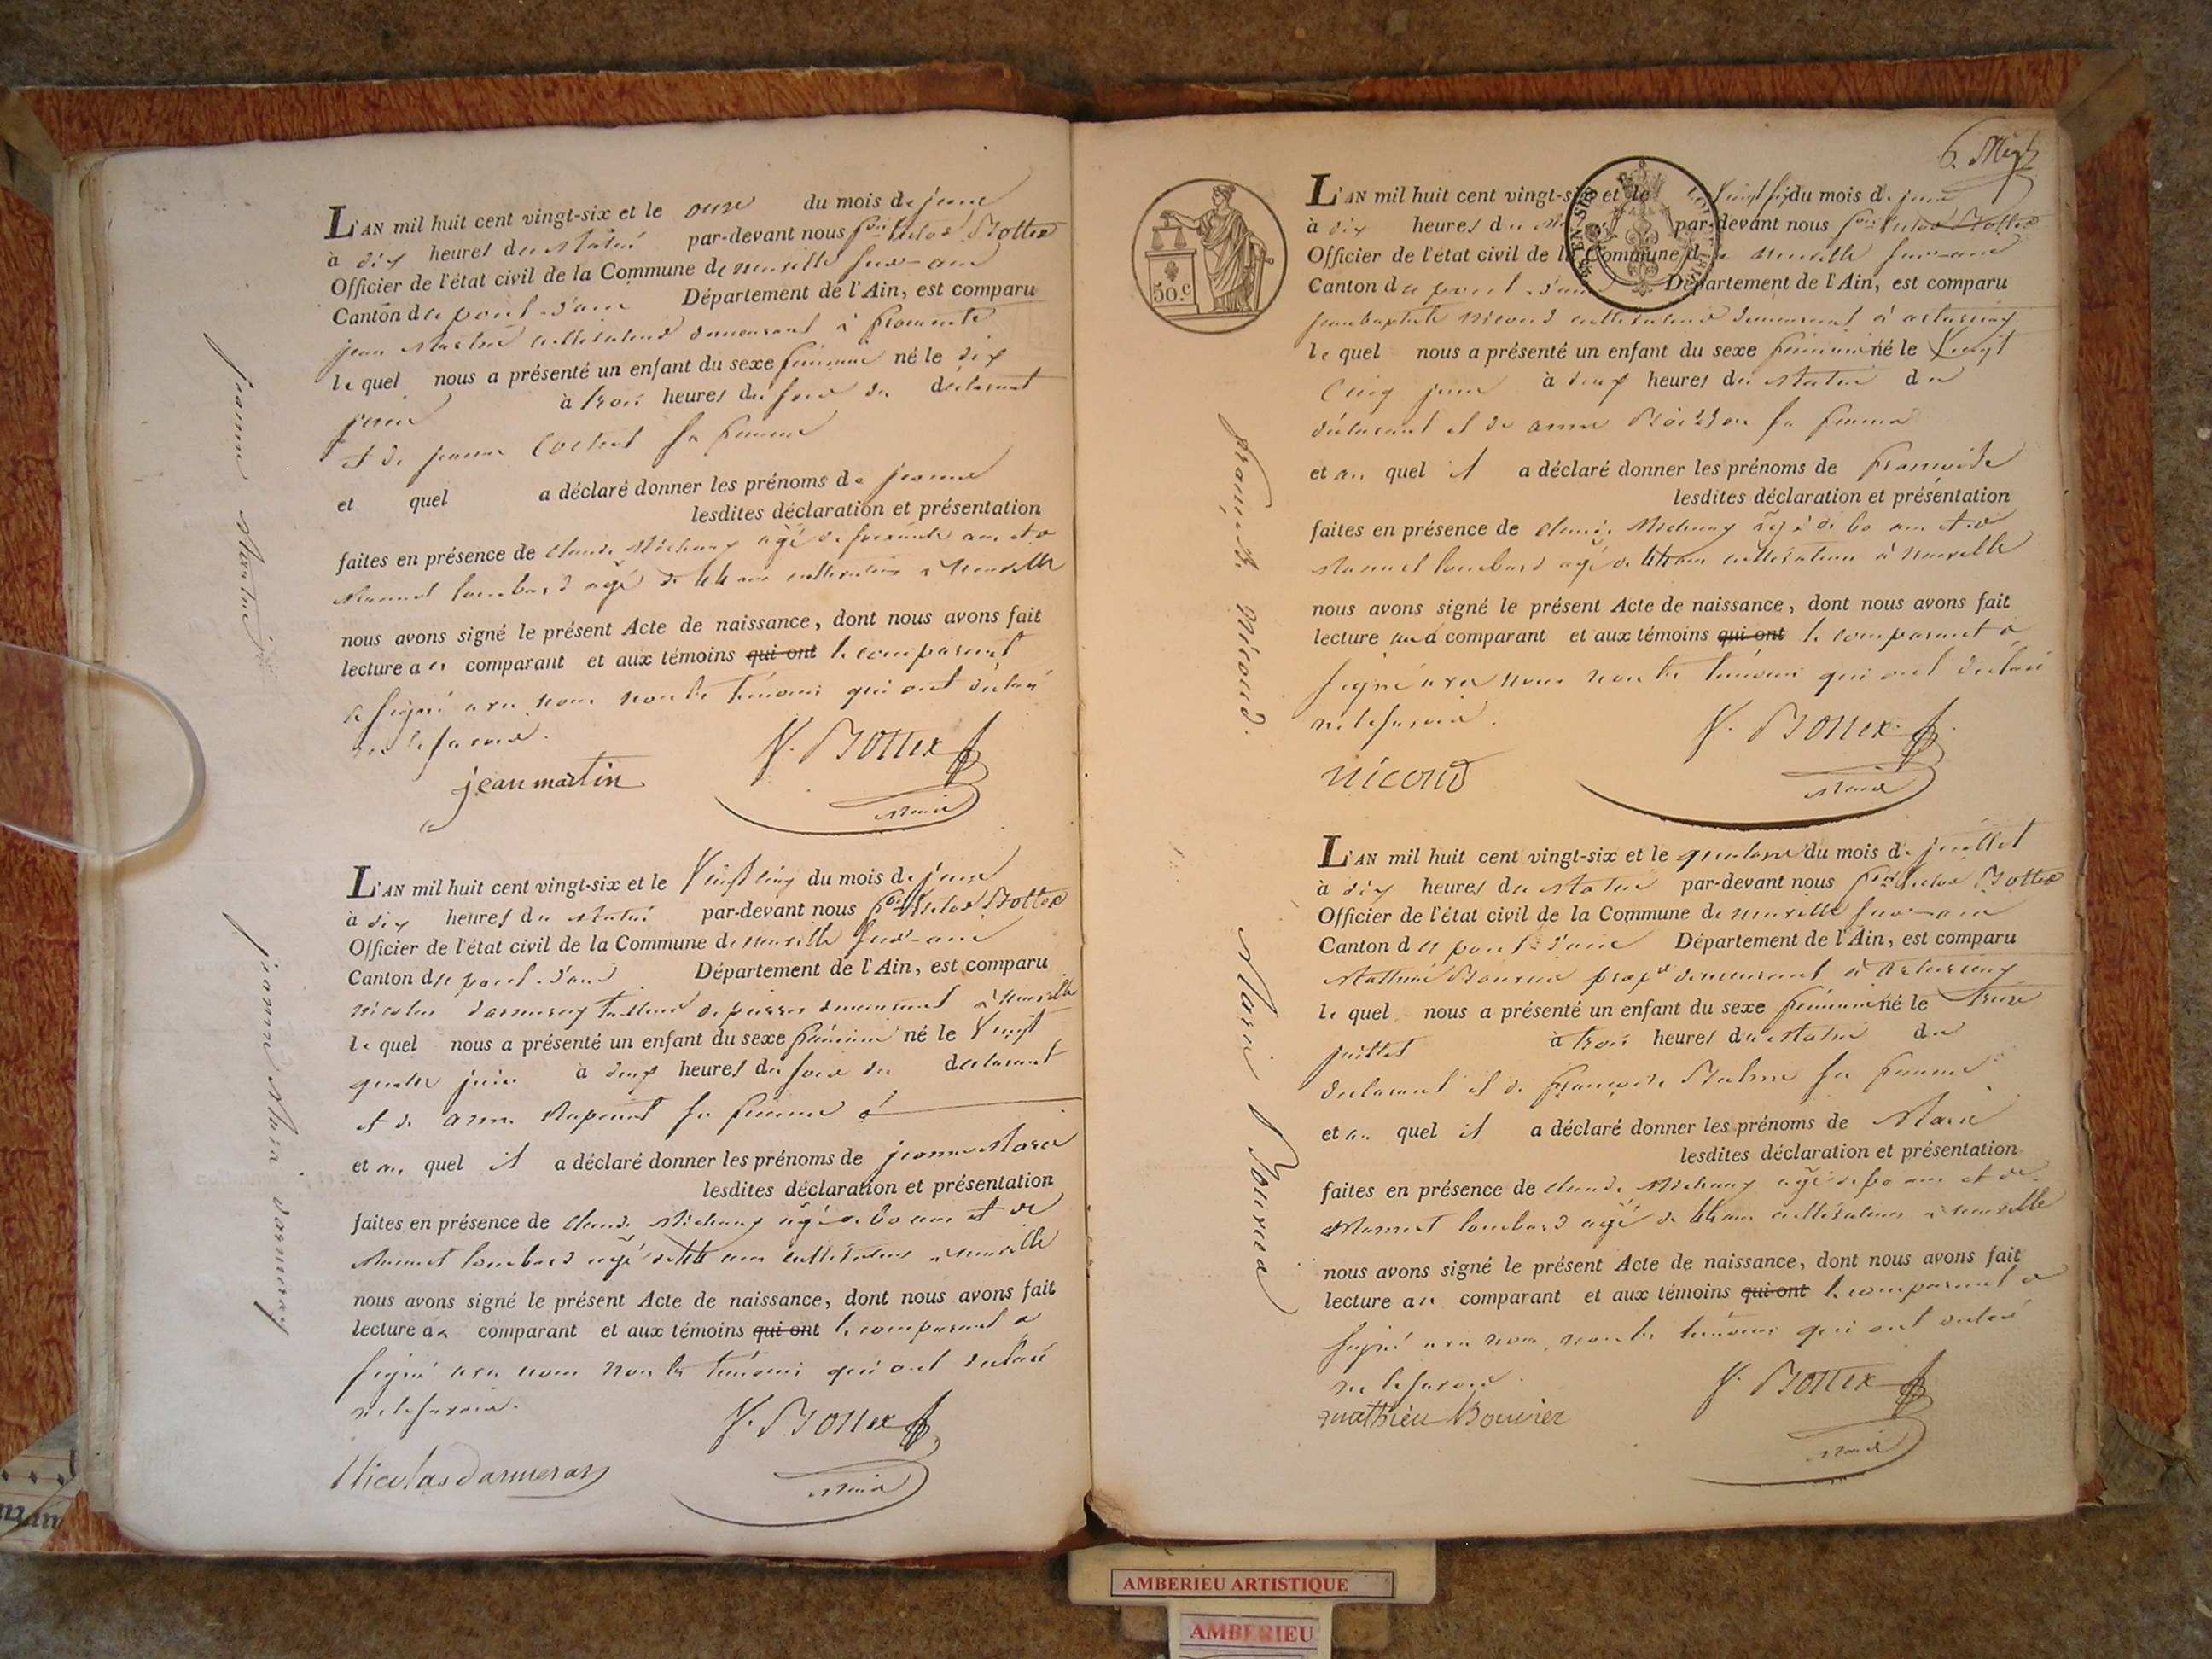 jeanne Martin
L'AN mil huit cent vingt-six et le onze du mois de juin
à dix heures du Matin par-devant nous fois Victor Bottex
Officier de l'état civil de la Commune de neuville sur-ain
Canton de pont-d'ain Département de l'Ain, est comparu
jean Martin cultivateur demeurant à fromente
le quel nous a présenté un enfant du sexe féminin né le dix
juin à trois heures du soir du déclarant
et de jeanne Cochet sa femme
et quel a déclaré donner les prénoms de jeanne
lesdites déclaration et présentation
faites en présence de claude Michaux agé de soixante ans et de
Manuel lombard agé de 44 ans cultivateurs à Neuville
nous avons signé le présent Acte de naissance, dont nous avons fait
lecture au comparant et aux témoins qui ont le comparant
a signé avec nous non les témoins qui ont déclaré
ne le savoir.
jean martin V. Bottex
Maire
jeanne Marie darmeray
L'AN mil huit cent vingt-six et le Vingt cinq du mois de juin
à dix heures du Matin par-devant nous fois Victor Bottex
Officier de l'état civil de la Commune de neuville sur-ain
Canton de pont-d'ain Département de l'Ain, est comparu
nicolas darmeray tailleur de pierres demeurant à Neuville
le quel nous a présenté un enfant du sexe féminin né le Vingt
quatre juin à deux heures du soir du déclarant
et de anne sa femme
et au quel il a déclaré donner les prénoms de jeanne Marie
lesdites déclaration et présentation
faites en présence de claude Michaux agé de 60 ans et de
Manuel lombard agé de 44 ans cultivateurs à neuville
nous avons signé le présent Acte de naissance, dont nous avons fait
lecture au comparant et aux témoins qui ont le comparant a
signé avec nous non les témoins qui ont déclaré
ne le savoir.
V. Bottex
Nicolas darmeray Maire
6.
50.c
françoise nicoud.
L'AN mil huit cent vingt-six et le Vingt six du mois de juin
à dix heures du Matin par-devant nous fois Victor Bottex
Officier de l'état civil de la Commune de neuville sur-ain
Canton de pont-d'ain Département de l'Ain, est comparu
jean baptiste nicoud cultivateur demeurant à
le quel nous a présenté un enfant du sexe féminin né le Vingt
Cinq juin à deux heures du Matin du
déclarant et de anne sa femme
et au quel il a déclaré donner les prénoms de françoise
lesdites déclaration et présentation
faites en présence de claude Michaux agé de 60 ans et de
Manuel lombard agé de 44 ans cultivateurs à neuville
nous avons signé le présent Acte de naissance, dont nous avons fait
lecture au comparant et aux témoins qui ont le comparant a
signé avec nous non les témoins qui ont déclaré
ne le savoir.
V. Bottex
nicoud Maire
Marie Bouvier
L'AN mil huit cent vingt-six et le quatorze du mois de juillet
à dix heures du Matin par-devant nous fois Victor Bottex
Officier de l'état civil de la Commune de neuville sur-ain
Canton de pont-d'ain Département de l'Ain, est comparu
Mathieu Bouvier propre demeurant à
le quel nous a présenté un enfant du sexe féminin né le treize
juillet à trois heures du Matin du
déclarant et de françoise sa femme
et au quel il a déclaré donner les prénoms de Marie
lesdites déclaration et présentation
faites en présence de claude Michaux agé de 60 ans et de
Manuel lombard agé de 44 ans cultivateurs à neuville
nous avons signé le présent Acte de naissance, dont nous avons fait
lecture au comparant et aux témoins qui ont le comparant a
signé avec nous, non les témoins qui ont déclaré
ne le savoir.
V. Bottex
mathieu Bouvier
Maire
AMBERIEU ARTISTIQUE
AMBERIEU